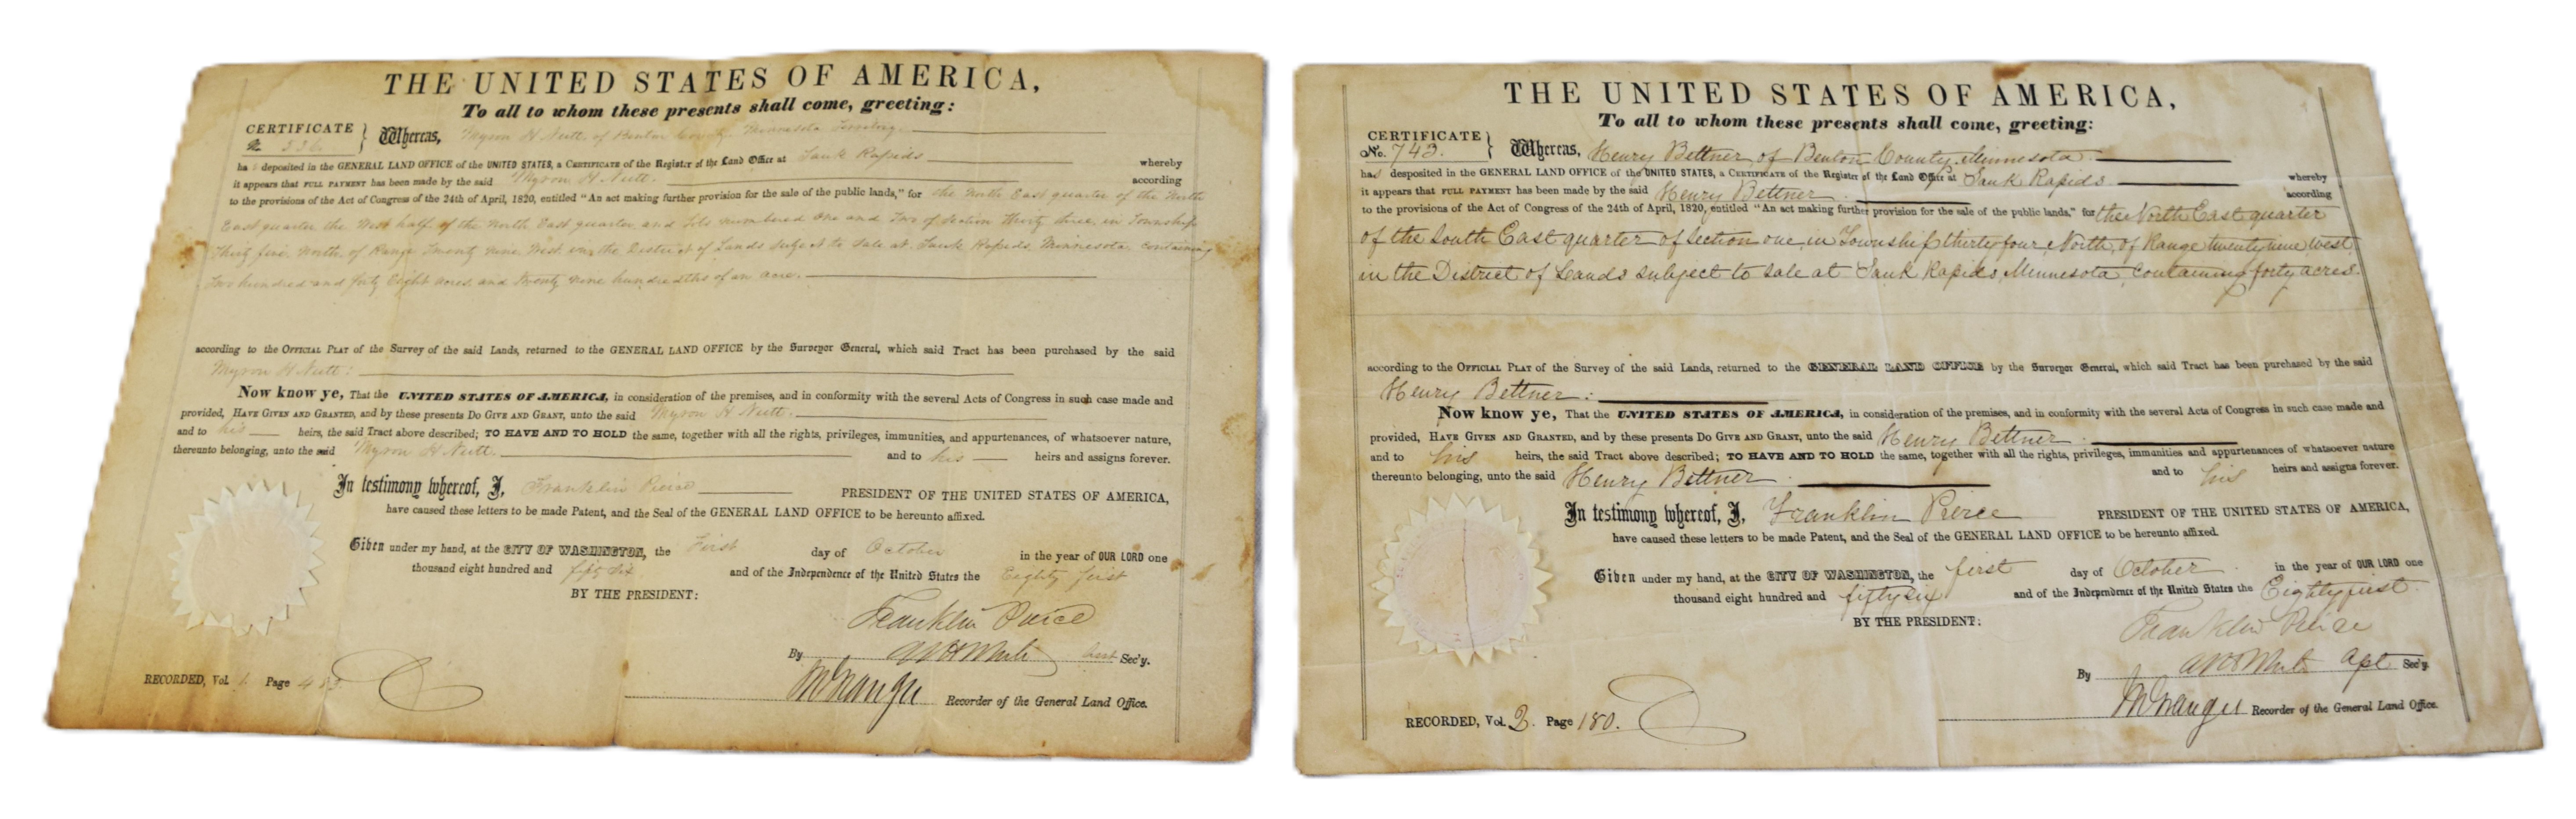 THE UNITED STATES OF AMERICA,
To all to whom these presents shall come, greeting:
CERTIFICATE
No. 536
Whereas, Myron H Nutt of Benton County Minnesota Territory
ha deposited in the GENERAL LAND OFFICE of the UNITED STATES, a CERTIFICATE of the Register of the Land Office at Sauk Rapids whereby
it appears that FULL PAYMENT has been made by the said Myron H Nutt. according
to the provisions of the Act of Congress of the 24th of April, 1820, entitled "An act making further provision for the sale of the public lands," for the North East quarter of the North
East quarter the West half of the North East quarter and lots numbered One and Two of Section thirty three, in Township
Thirty five North, of Range Twenty nine West, in the District of Lands subject to sale at Sauk Rapids, Minnesota, containing
Two hundred and forty Eight acres, and twenty nine hundredths of an acre.
according to the OFFICIAL PLAT of the Survey of the said Lands, returned to the GENERAL LAND OFFICE by the Surveyor General, which said Tract has been purchased by the said
Myron H Nutt:
Now know ye, That the UNITED STATES OF AMERICA, in consideration of the premises, and in conformity with the several Acts of Congress in such case made and
provided, HAVE GIVEN AND GRANTED, and by these presents Do GIVE AND GRANT, unto the said Myron H Nutt.
and to his heirs, the said Tract above described; TO HAVE AND TO HOLD the same, together with all the rights, privileges, immunities, and appurtenances, of whatsoever nature,
thereunto belonging, unto the said Myron H Nutt. and to his heirs and assigns forever.
In testimony whereof, I, Franklin Pierce PRESIDENT OF THE UNITED STATES OF AMERICA,
have caused these letters to be made Patent, and the Seal of the GENERAL LAND OFFICE to be hereunto affixed.
Given under my hand, at the CITY OF WASHINGTON, the First day of October in the year of OUR LORD one
thousand eight hundred and fifty six and of the Independence of the United States the Eighty first
BY THE PRESIDENT:
Franklin Pierce
By Asst Sec'y.
Recorder of the General Land Office.
RECORDED, Vol. 1. Page
THE UNITED STATES OF AMERICA,
To all to whom these presents shall come, greeting:
CERTIFICATE
No. 743.
Whereas, Henry Bettner, of Benton County, Minnesota.
has desposited in the GENERAL LAND OFFICE of the UNITED STATES, a CERTIFICATE of the Register of the Land Office at Sauk Rapids whereby
it appears that FULL PAYMENT has been made by the said Henry Bettner. according
to the provisions of the Act of Congress of the 24th of April, 1820, entitled "An act making further provision for the sale of the public lands," for the North East quarter
of the South East quarter of Section one, in Township thirty four, North, of Range twenty nine West,
in the District of Lands subject to sale at Sauk Rapids, Minnesota, Containing forty acres.
according to the OFFICIAL PLAT of the Survey of the said Lands, returned to the GENERAL LAND OFFICE by the Surveyor General, which said Tract has been purchased by the said
Henry Bettner:
Now know ye, That the UNITED STATES OF AMERICA, in consideration of the premises, and in conformity with the several Acts of Congress in such case made and
provided, HAVE GIVEN AND GRANTED, and by these presents Do GIVE AND GRANT, unto the said Henry Bettner.
and to his heirs, the said Tract above described; TO HAVE AND TO HOLD the same, together with all the rights, privileges, immunities and appurtenances of whatsoever nature
thereunto belonging, unto the said Henry Bettner. and to his heirs and assigns forever.
In testimony whereof, I, Franklin Pierce PRESIDENT OF THE UNITED STATES OF AMERICA,
have caused these letters to be made Patent, and the Seal of the GENERAL LAND OFFICE to be hereunto affixed.
Given under my hand, at the CITY OF WASHINGTON, the first day of October. in the year of OUR LORD one
thousand eight hundred and fifty six and of the Independence of the United States the Eighty first.
BY THE PRESIDENT:
Franklin Pierce
By Sec'y.
Recorder of the General Land Office.
RECORDED, Vol. 2. Page 180.